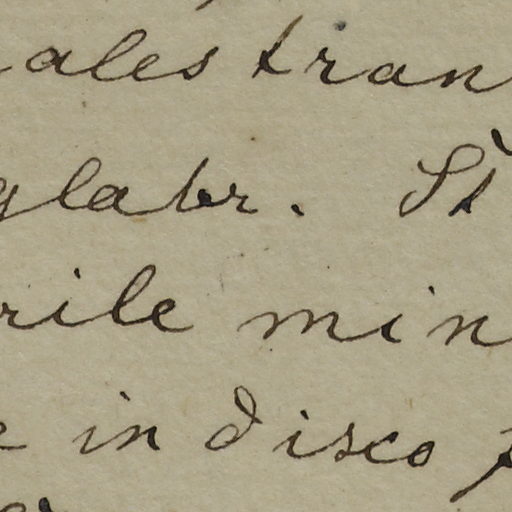 ales tran
glabr. St
rile min
in disco